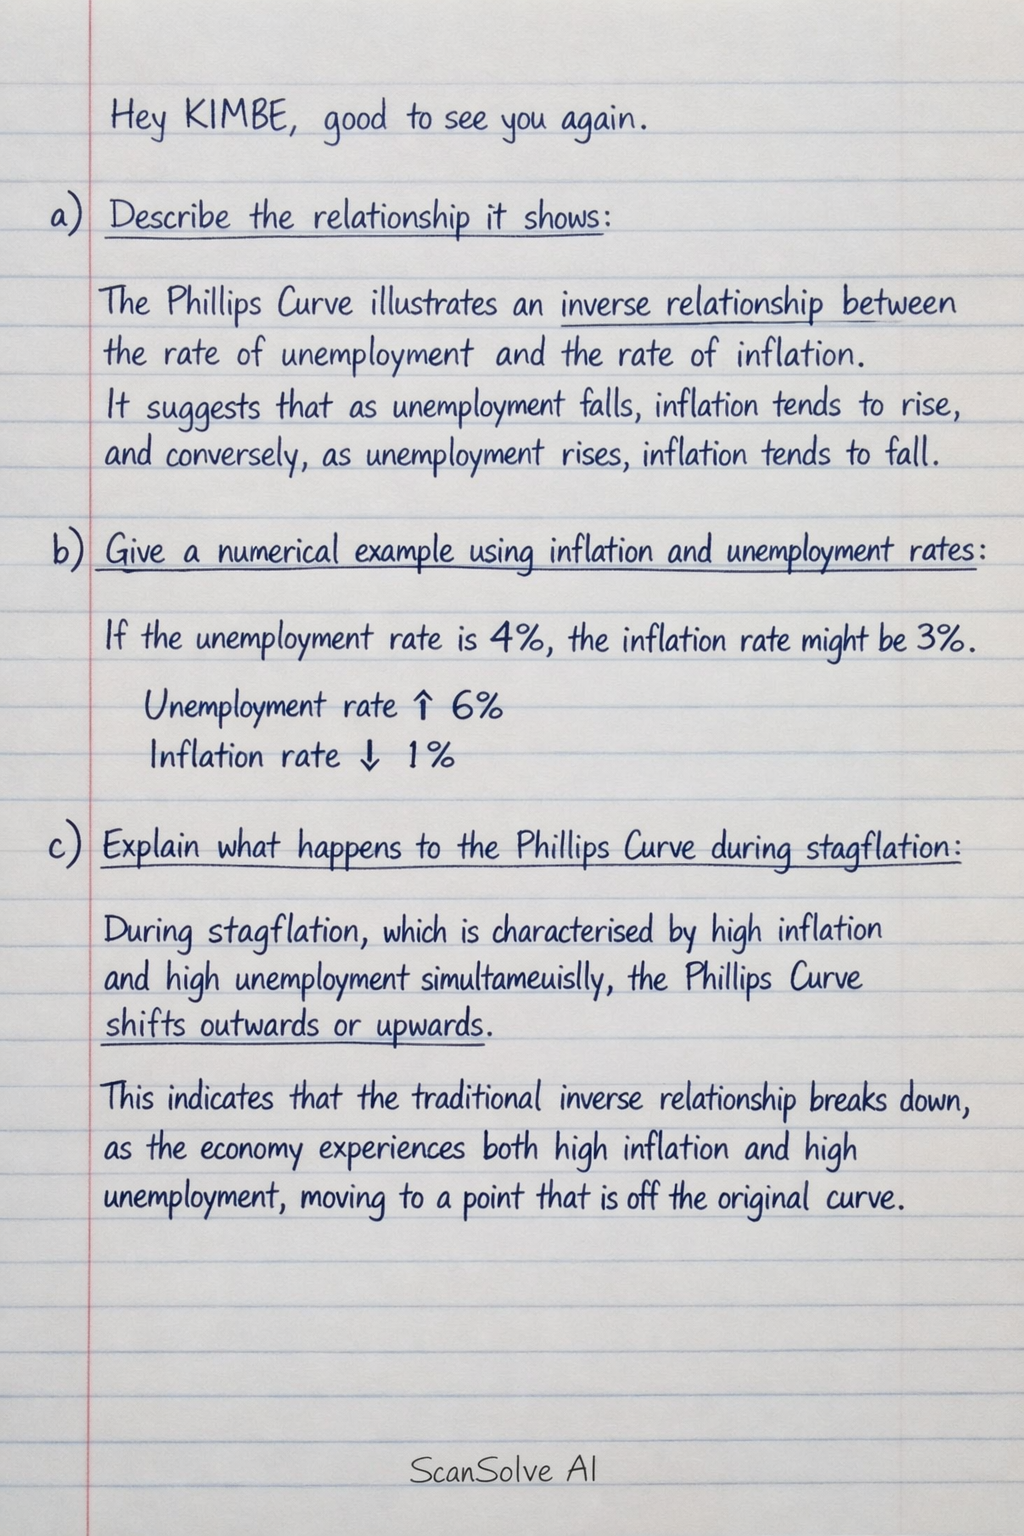 Hey KIMBE, good to see you again.
a) Describe the relationship it shows:
The Phillips Curve illustrates an inverse relationship between
the rate of unemployment and the rate of inflation.
It suggests that as unemployment falls, inflation tends to rise,
and conversely, as unemployment rises, inflation tends to fall.
b) Give a numerical example using inflation and unemployment rates:
If the unemployment rate is 4%, the inflation rate might be 3%.
Unemployment rate ↑ 6%
Inflation rate ↓ 1%
c) Explain what happens to the Phillips Curve during stagflation:
During stagflation, which is characterised by high inflation
and high unemployment simultameuislly, the Phillips Curve
shifts outwards or upwards.
This indicates that the traditional inverse relationship breaks down,
as the economy experiences both high inflation and high
unemployment, moving to a point that is off the original curve.
ScanSolve AI